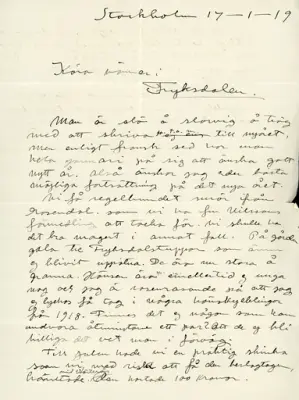 Stockholm 17-1-19
Kära vänner i
Fryksdalen.
Man är så slö &
med att skriva till nyåret,
men enligt fransk sed har man
hela januari på sig att önska gott
nytt år. Alltså önskar jag eder bästa
möjliga fortsättning på det nya året.
Vi få regelbundet smör från
Rosendal, som vi ha fru Nilssons
förmedling att tacka för. Vi skulle ha
det bra magert i annat fall. På gården
gala tre Fryksdalstuppar som
ej blivit uppätna. De äro nu stora &
granna. Hönsen äro emellertid ej unga
nog och jag är resonerande på att jag
ej lyckas få tag i några hönskycklingar
från 1918. Finnes det ej någon som kan
undvara åtminstone ett par? Att de ej bli
billiga det vet man i förväg.
Till julen hade vi en präktig skinka
som vi, med risk att få den beslagtagen,
hämtade. Den kostade 100 kronor.